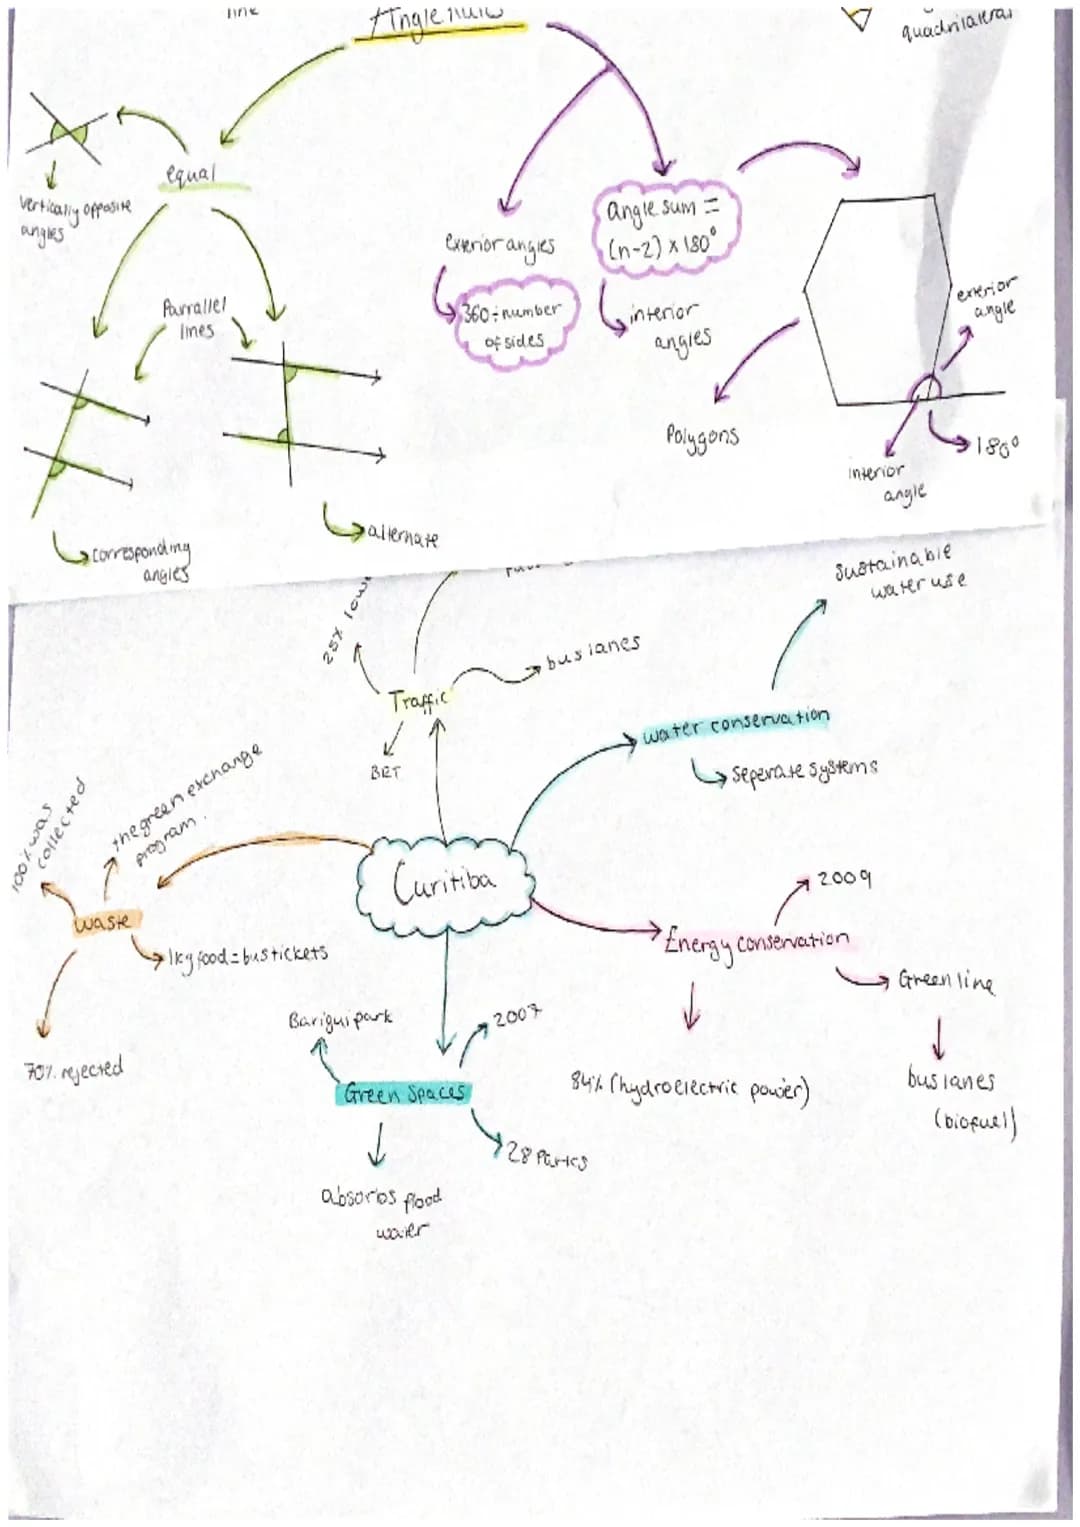 line
Angle rules
quadrilateral
equal
vertically opposite
angles
Parrallel
lines
corresponding
angles
alternate
exterior angles
360÷number
of sides
angle sum =
(n-2) x 180°
interior
angles
Polygons
exterior
angle
interior
angle
180°
25%
bus lanes
Traffic
BRT
sustainable
water use
water conservation
seperate systems
Curitiba
the green exchange
program.
100% was
collected
waste
1kg food = bus tickets
70% rejected
Barigui park
2007
Green Spaces
28 Parks
absorbs flood
water
2009
Energy conservation
Green line
84% (hydroelectric power)
bus lanes
(biofuel)